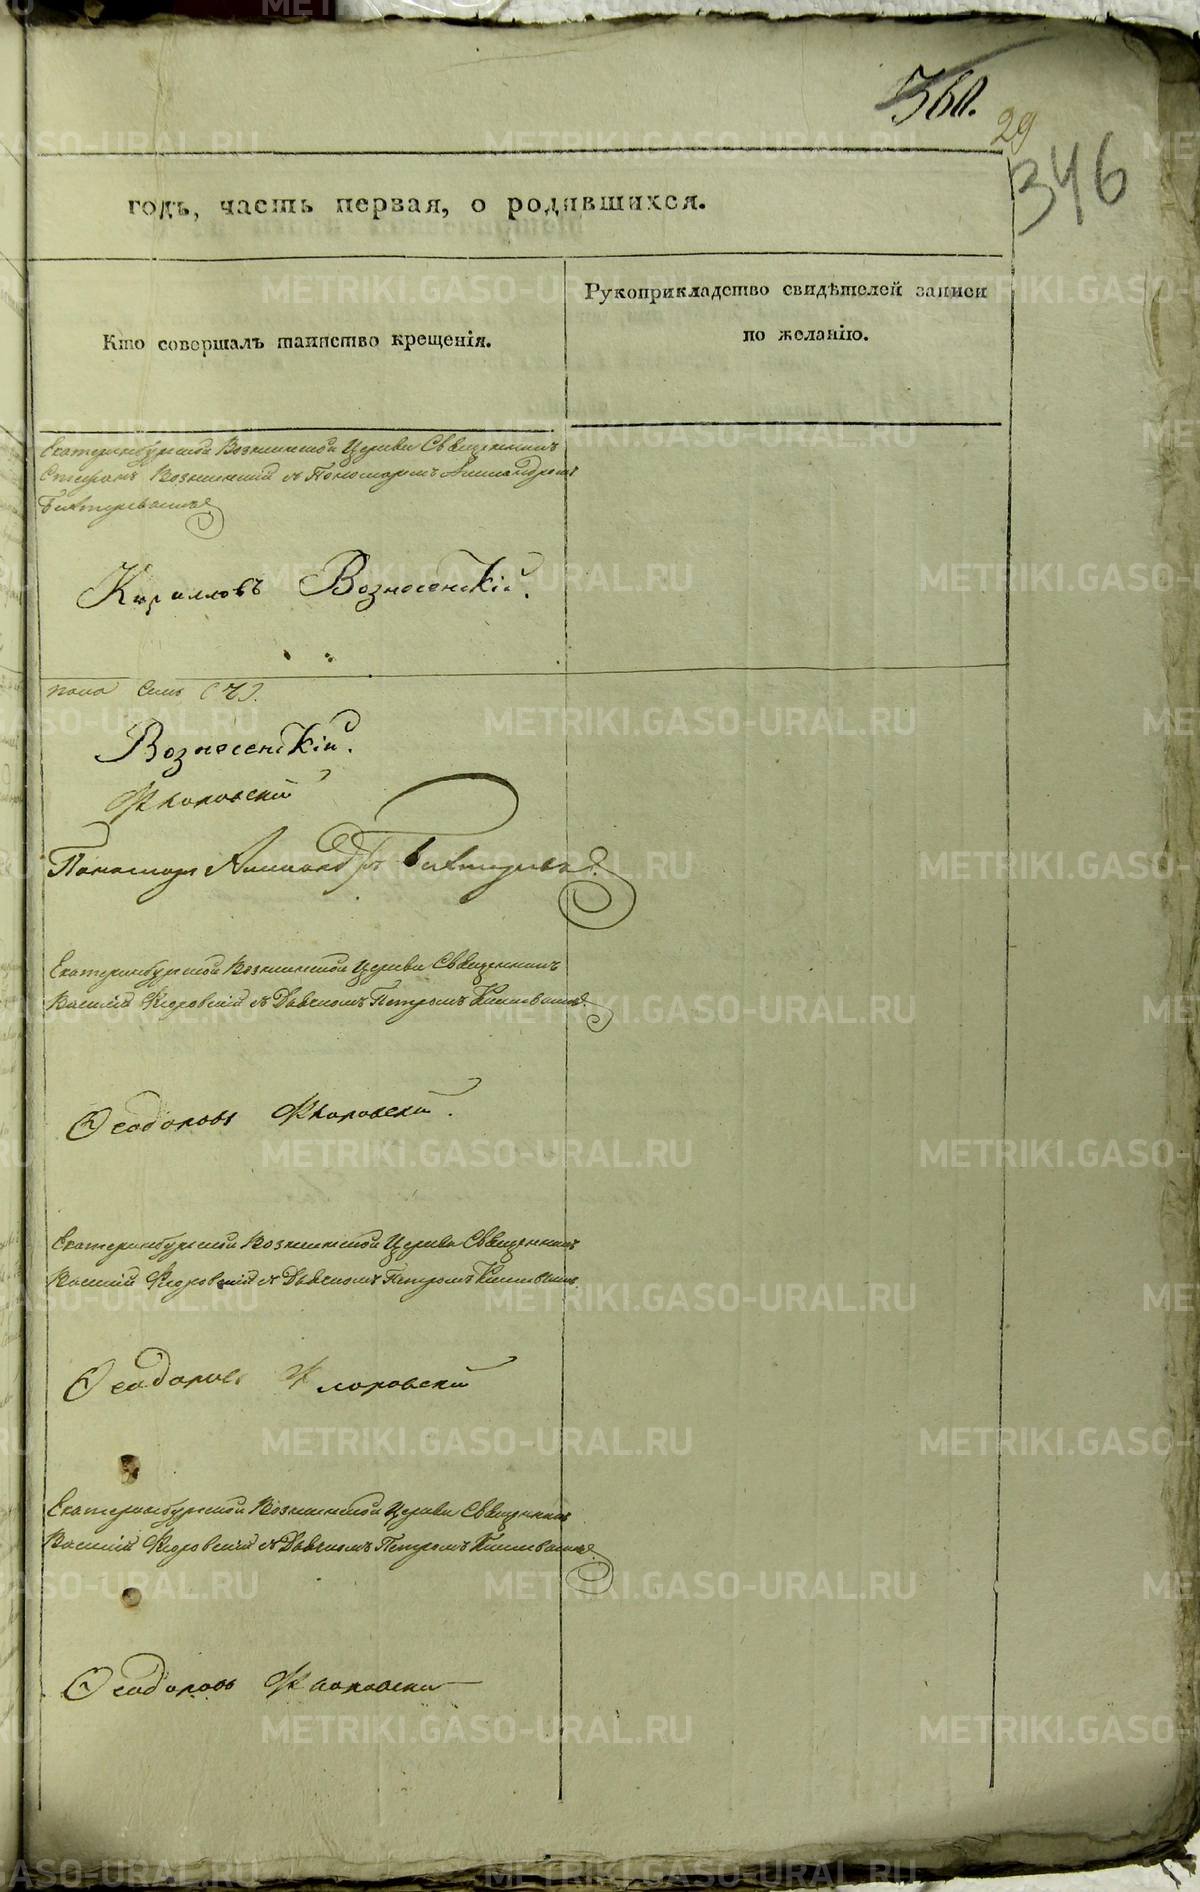 360.
29
346
годъ, часть первая, о родившихся.
Кто совершалъ таинство крещенія.
Рукоприкладство свидѣтелей записи
по желанію.
Екатеринбургской Вознесенской Церкви Священникъ
Стефанъ Вознесенскій съ Пономаремъ Александромъ
Кирилловъ Вознесенскій.
пола семь (7).
Вознесенскій.
Флоровскій
Пономарь Александръ
Екатеринбургской Вознесенской Церкви Священникъ
Василій Флоровскій съ Діакономъ Петромъ
Ѳеодоровъ Флоровскій.
Екатеринбургской Вознесенской Церкви Священникъ
Василій Флоровскій съ Діакономъ Петромъ
Ѳеодоровъ Флоровскій
Екатеринбургской Вознесенской Церкви Священникъ
Василій Флоровскій съ Діакономъ Петромъ
Ѳеодоровъ Флоровскій
METRIKI.GASO-URAL.RU